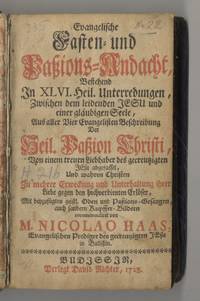 Evangelische
Fasten- und
Paßions-Andacht,
Bestehend
In XLVI. Heil. Unterredungen,
Zwischen dem leidenden JESU und
einer gläubigen Seele,
Aus aller Vier Evangelisten Beschreibung
Der
Heil. Paßion Christi,
Von einem treuen Liebhaber des gecreutzigten
JEsu abgefasset,
Und wahren Christen
Zu mehrer Erweckung und Unterhaltung ihrer
Liebe gegen den hochverdienten Erlöser,
Mit beygefügten geistl. Oden und Paßions-Gesängen
auch saubern Kupffer-Bildern
M. NICOLAO HAAS,
Evangelischen Prediger des gecreutzigten JEsu
in Budißin.
BUDISSIN,
Verlegt David Richter, 1725.